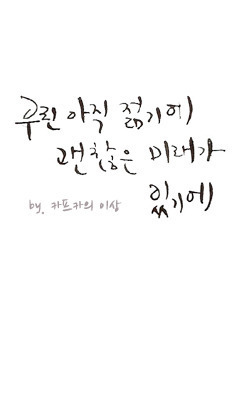 우린 아직 젊기에
괜찮은 미래가
있기에
by. 카프카의 이상